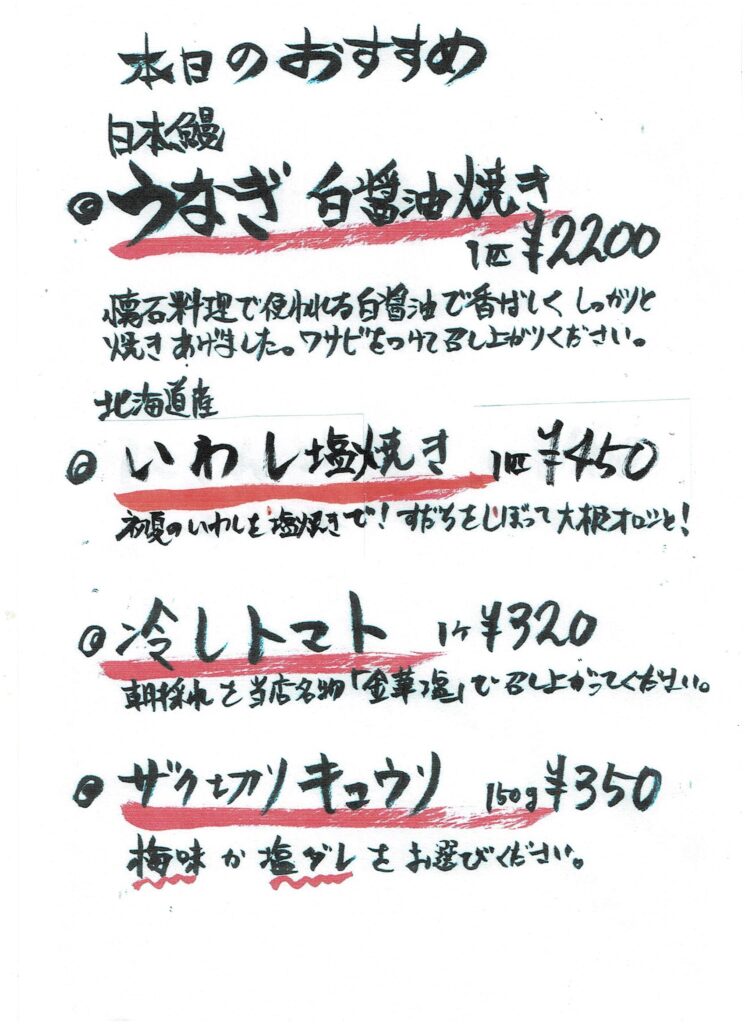 本日のおすすめ
日本鰻
◎うなぎ 白醤油焼き
1匹 ¥2200
懐石料理で使われる白醤油で香ばしく しっかりと
焼きあげました。ワサビをつけて召し上がりください。
北海道産
◎いわし塩焼き 1匹 ¥450
初夏のいわしを塩焼きで！すだちをしぼって大根オロシと！
◎冷しトマト 1ケ ¥320
朝採れを当店名物「金華塩」で召し上がってください。
◎ザク切リキュウリ 150g ¥350
梅味か塩ダレをお選びください。